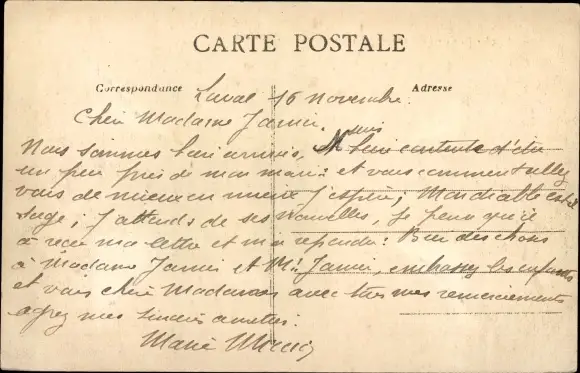 CARTE POSTALE
Correspondance
Adresse
Laval 16 novembre.
Chère Madame Jamin.
Nous sommes bien arrivés, suis bien contente d'être
un peu près de mon mari: et vous comment allez
vous de mieux en mieux j'espère; Mon diable est-il
sage; J'attends de ses nouvelles, je pense qu'il
a reçu ma lettre et me répondra: Bien des choses
à Madame Jamin et Mr Jamin, embrassez les enfants
et vous chère Madame avec tous mes remerciements
agréez mes sincères amitiés.
Marie